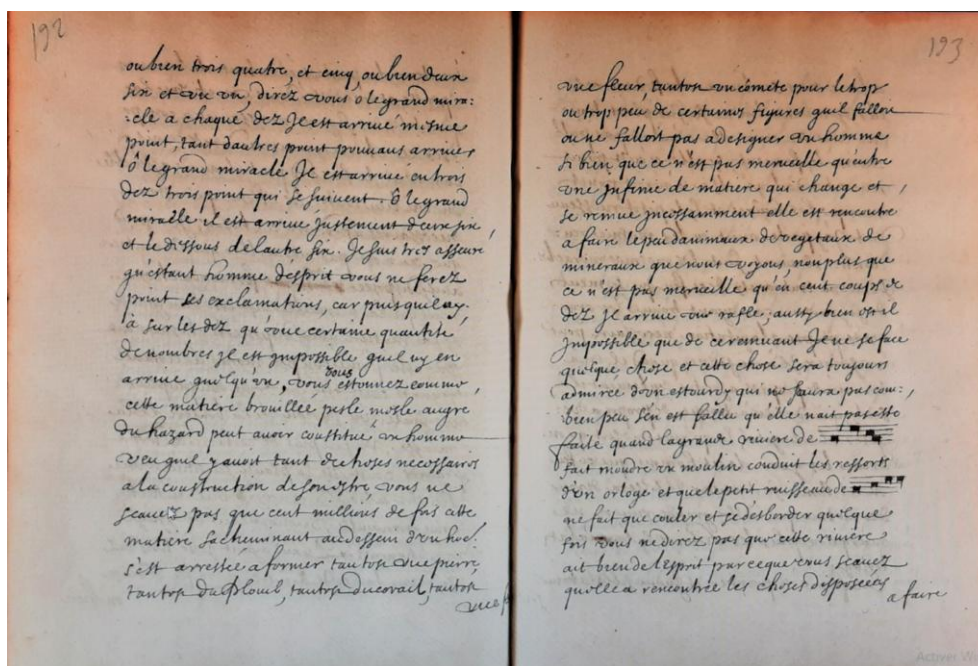 192
ou bien trois quatre, et cinq, ou bien deux
six et un un, direz vous ô le grand mira:
:cle a chaque dez Il est arrivé mesme
point, tant dautres point pouvans arriver
ô le grand miracle Il est arrivé en trois
dez trois point qui se suivent. ô le grand
miracle il est arrivé justement deux six,
et le dessous de lautre six. Je suis tres asseuré
qu'estant homme desprit vous ne ferez
point ses exclamations, car puis quil ny,
à sur les dez qu'une certaine quantité
de nombres il est impossible quil ny en
arrive quelqu'un, vous vous estonnez comme,
cette matiere brouillée pesle mesle au gré
du hazard peut avoir constitué un homme
veu quil y avoit tant de choses necessaires
a la construction de son estre vous ne
scavez pas que cent millions de fois cette
matiere sacheminant au dessein d'un ho{e}.
s'est arrestée a former tantost une pierre,
tantost du Plomb, tantost du corail, tantost
une f
193
une fleur, tantost un cómete pour le trop
ou trop peu de certaines figures quil falloit
ou ne falloit pas a designer un homme
si bien que ce n'est pas merveille qu'entre
une infinie de matiere qui change et,
se remue incessamment elle est rencontré
a faire le peu danimaux de vegetaux de
mineraux que nous voyons, non plus que
ce n'est pas merveille qu'en cent coups de
dez Il arrive une rafle, aussy bien est il
Impossible que de ce remuant Il ne se face
quelque chose et cette chose sera toujours
admirée d'un estourdy qui ne saura pas com:,
bien peu s'en est fallu qu'elle nait pas esté
faite quand la grande riviere de
fait moudre un moulin conduit les ressorts
d'un orloge et que le petit ruisseau de
ne fait que couler et se desborder quelque
fois vous ne direz pas que cette riviere
ait bien de l'esprit parce que vous scavez
quelle a rencontré les choses disposées
a faire